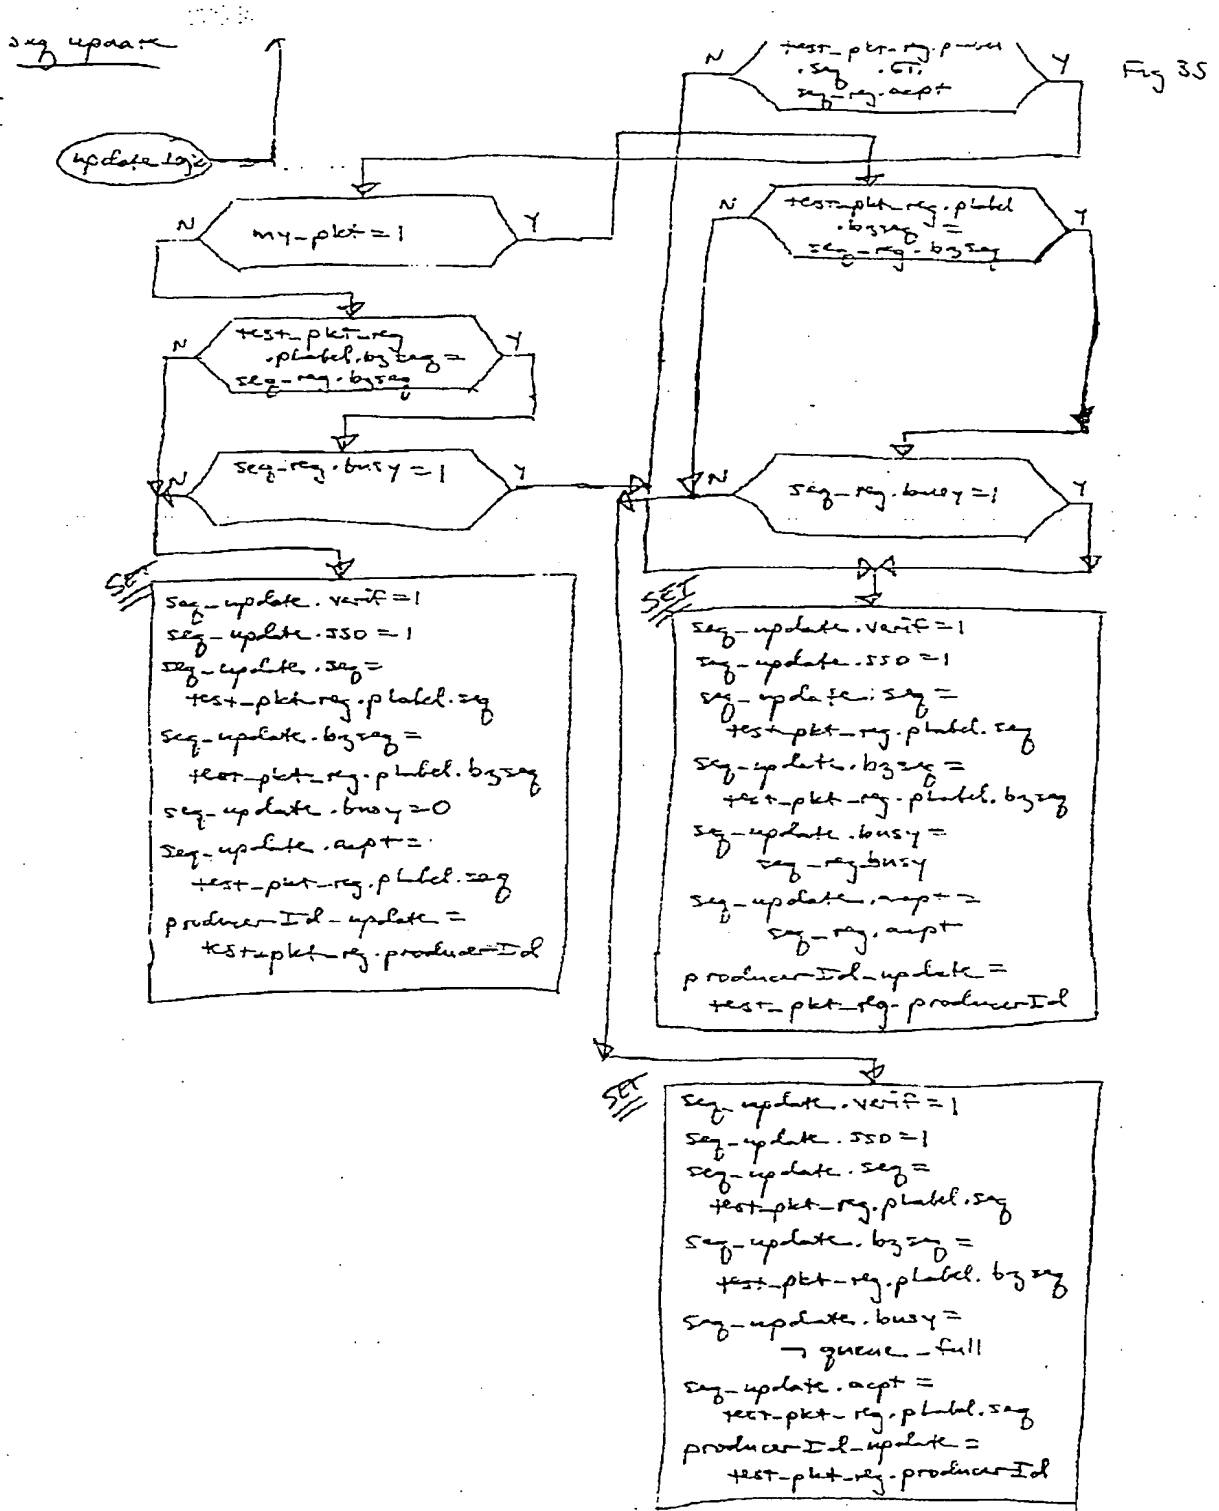 seq update
Fig 35
N
test_pkt_reg.plabel
.seq .GT.
seq_reg.acpt
Y
update logic
N
my_pkt=1
Y
N
test_pkt_reg.plabel
.bzseq =
seq_reg.bzseq
Y
N
test_pkt_reg
.plabel.bzseq =
seq_reg.bzseq
Y
N
seq_reg.busy=1
Y
N
seq_reg.busy=1
Y
SET
seq_update.verif=1
seq_update.SSD=1
seq_update.seq=
test_pkt_reg.plabel.seq
seq_update.bzseq=
test_pkt_reg.plabel.bzseq
seq_update.busy=0
seq_update.acpt=
test_pkt_reg.plabel.seq
producerId_update=
test_pkt_reg.producerId
SET
seq_update.verif=1
seq_update.SSD=1
seq_update.seq=
test_pkt_reg.plabel.seq
seq_update.bzseq=
test_pkt_reg.plabel.bzseq
seq_update.busy=
seq_reg.busy
seq_update.acpt=
seq_reg.acpt
producerId_update=
test_pkt_reg.producerId
SET
seq_update.verif=1
seq_update.SSD=1
seq_update.seq=
test_pkt_reg.plabel.seq
seq_update.bzseq=
test_pkt_reg.plabel.bzseq
seq_update.busy=
¬ queue_full
seq_update.acpt=
test_pkt_reg.plabel.seq
producerId_update=
test_pkt_reg.producerId